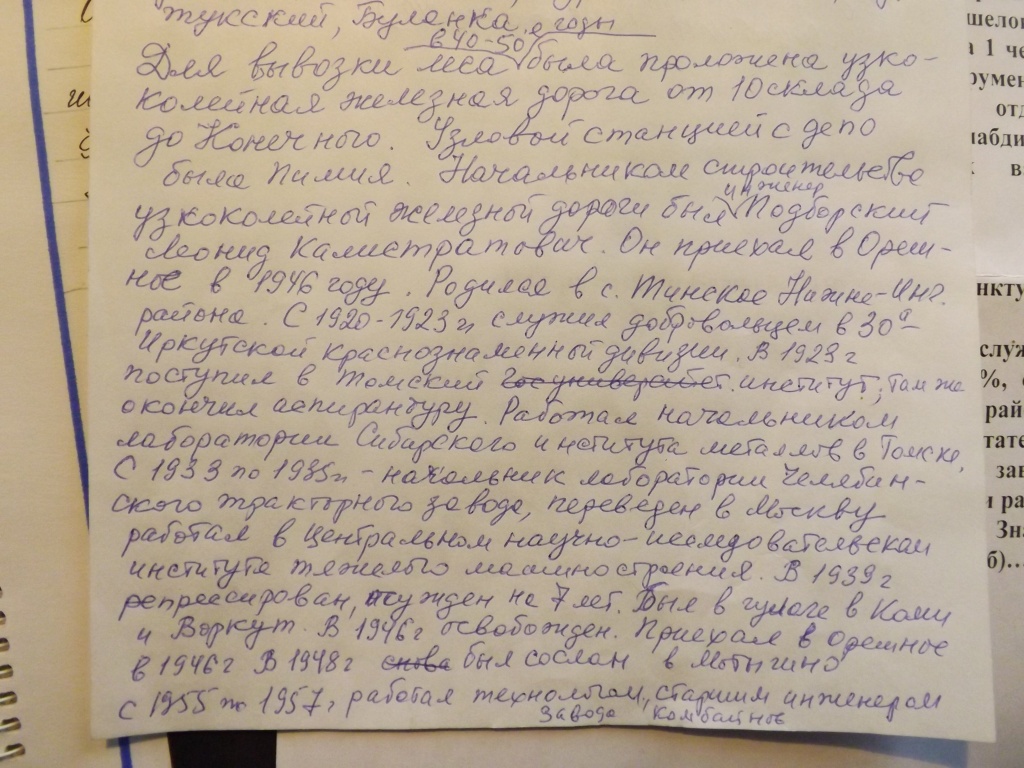 тукский, Буланка.
в 40-50е годы
Для вывозки леса была проложена узко-
колейная железная дорога от 10 склада
до Конечного. Узловой станцией с депо
была Пимия. Начальником строительства
инженер
узкоколейный железный дороги был Подборский
Леонид Калистратович. Он приехал в Ореш-
ное в 1946 году. Родился в с. Тинское Нижне-Инг.
района. С 1920-1923 гг служил добровольцем в 30а-
Иркутской краснознаменный дивизии. В 1923 г
поступил в Томский Госуниверситет. институт, там же
окончил аспирантуру. Работал начальником
лаборатории Сибирского института металлов в Томске,
С 1933 по 1935 гг - начальник лаборатории Челябин-
ского тракторного завода, переведен в Москву
работал в Центральном научно-исследовательском
института тяжелого машиностроения. В 1939 г
репрессирован, осужден на 7 лет. Был в гулаге в Коми
и Воркут. В 1946 г освобожден. Приехал в Орешное
в 1946 г В 1948 г снова был сослан в Мотыгино
с 1955 по 1957 г работал технологом, старшим инженером
завода комбайнов
шелон
а 1 че
румен
отд
набди
в
нкту
служ
%, с
рай
тате
зав
и ра
Зна
б)...